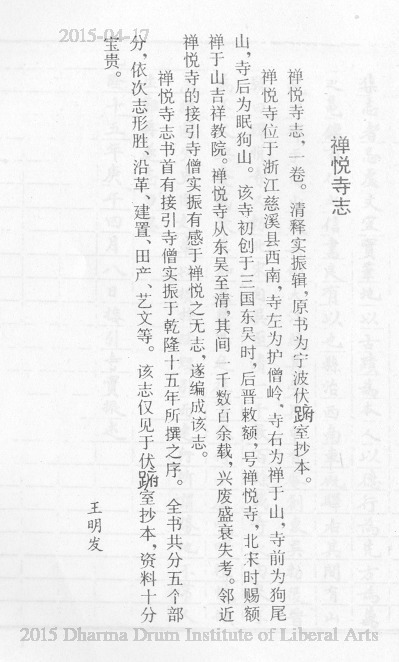 2015-04-17
禅悦寺志
禅悦寺志，一卷。清释实振辑，原书为宁波伏跗室抄本。
禅悦寺位于浙江慈溪县西南，寺左为护僧岭，寺右为禅于山，寺前为狗尾
山，寺后为眠狗山。该寺初创于三国东吴时，后晋敕额，号禅悦寺，北宋时赐额
禅于山吉祥教院。禅悦寺从东吴至清，其间一千数百余载，兴废盛衰失考。邻近
禅悦寺的接引寺僧实振有感于禅悦之无志，遂编成该志。
禅悦寺志书首有接引寺僧实振于乾隆十五年所撰之序。全书共分五个部
分，依次志形胜、沿革、建置、田产、艺文等。该志仅见于伏跗室抄本，资料十分
宝贵。
王明发
2015 Dharma Drum Institute of Liberal Arts